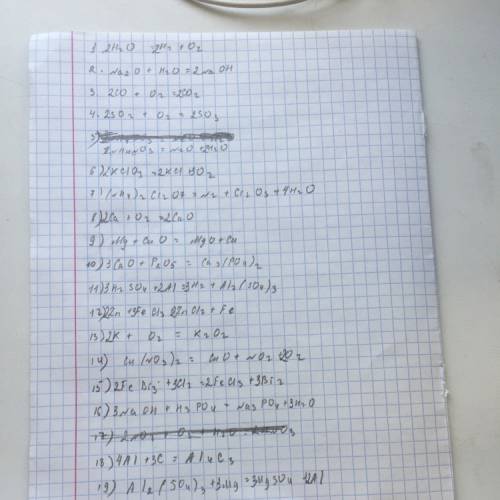 1. 2H2O 2H2 + O2
2. Na2O + H2O = 2NaOH
3. 2CO + O2 = 2CO2
4. 2SO2 + O2 = 2SO3
5)
NH4NO3 = N2O + 2H2O
6) 2KClO3 = 2KCl + 3O2
7) (NH4)2Cr2O7 = N2 + Cr2O3 + 4H2O
8) 2Ca + O2 = 2CaO
9) Mg + CuO = MgO + Cu
10) 3CaO + P2O5 = Ca3(PO4)2
11) 3H2SO4 + 2Al = 3H2 + Al2(SO4)3
12) + Fe
13) 2K + O2 = K2O2
14) Cu(NO3)2 = CuO + NO2 + O2
15) 2FeBr3 + 3Cl2 = 2FeCl3 + 3Br2
16) 3NaOH + H3PO4 = Na3PO4 + 3H2O
17)
18) 4Al + 3C = Al4C3
19) Al2(SO4)3 + 3Mg = 3MgSO4 2Al